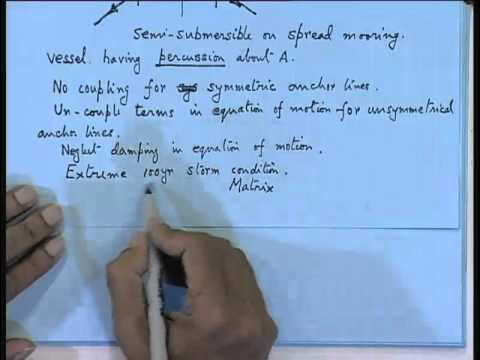 Semi-submersible on spread mooring.
Vessel having percussion about A.
No coupling for symmetric anchor lines.
Un-couple terms in equation of motion for unsymmetrical
anchor lines.
Neglect damping in equation of motion.
Extreme 100yr storm condition.
Matrix